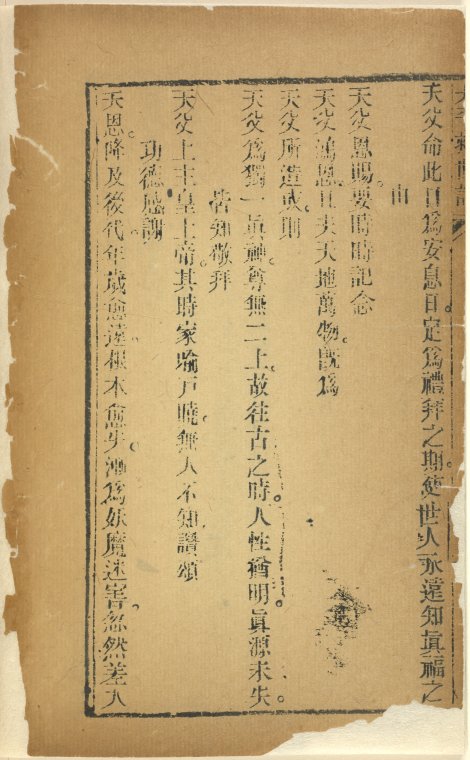 天父命此日爲安息日定爲禮拜之期。使世人永遠知眞福之
由
天父恩賜。要時時記念
天父鴻恩。且夫天地萬物。旣爲
天父所造成。則
天父爲獨一眞神。尊無二上。故往古之時。人性猶明。眞源未失。
皆知敬拜
天父上主皇上帝。其時家喻戶曉。無人不知讚頌
功德感謝
天恩。降及後代。年歲愈遠。根本愈失。漸爲妖魔迷害。忽然差入